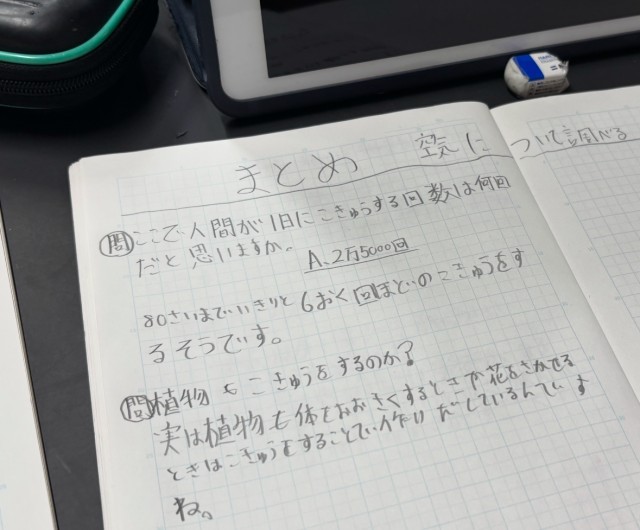 まとめ 空気について調べる
問 ここで人間が1日にこきゅうする回数は何回
だと思いますか。
A.2万5000回
80さいまでいきりと6おく回ほどのこきゅうをす
るそうです。
問 植物もこきゅうをするのか?
実は植物も体をおおきくするときや花をさかせる
ときはこきゅうをすることで作りだしているんです
ね。